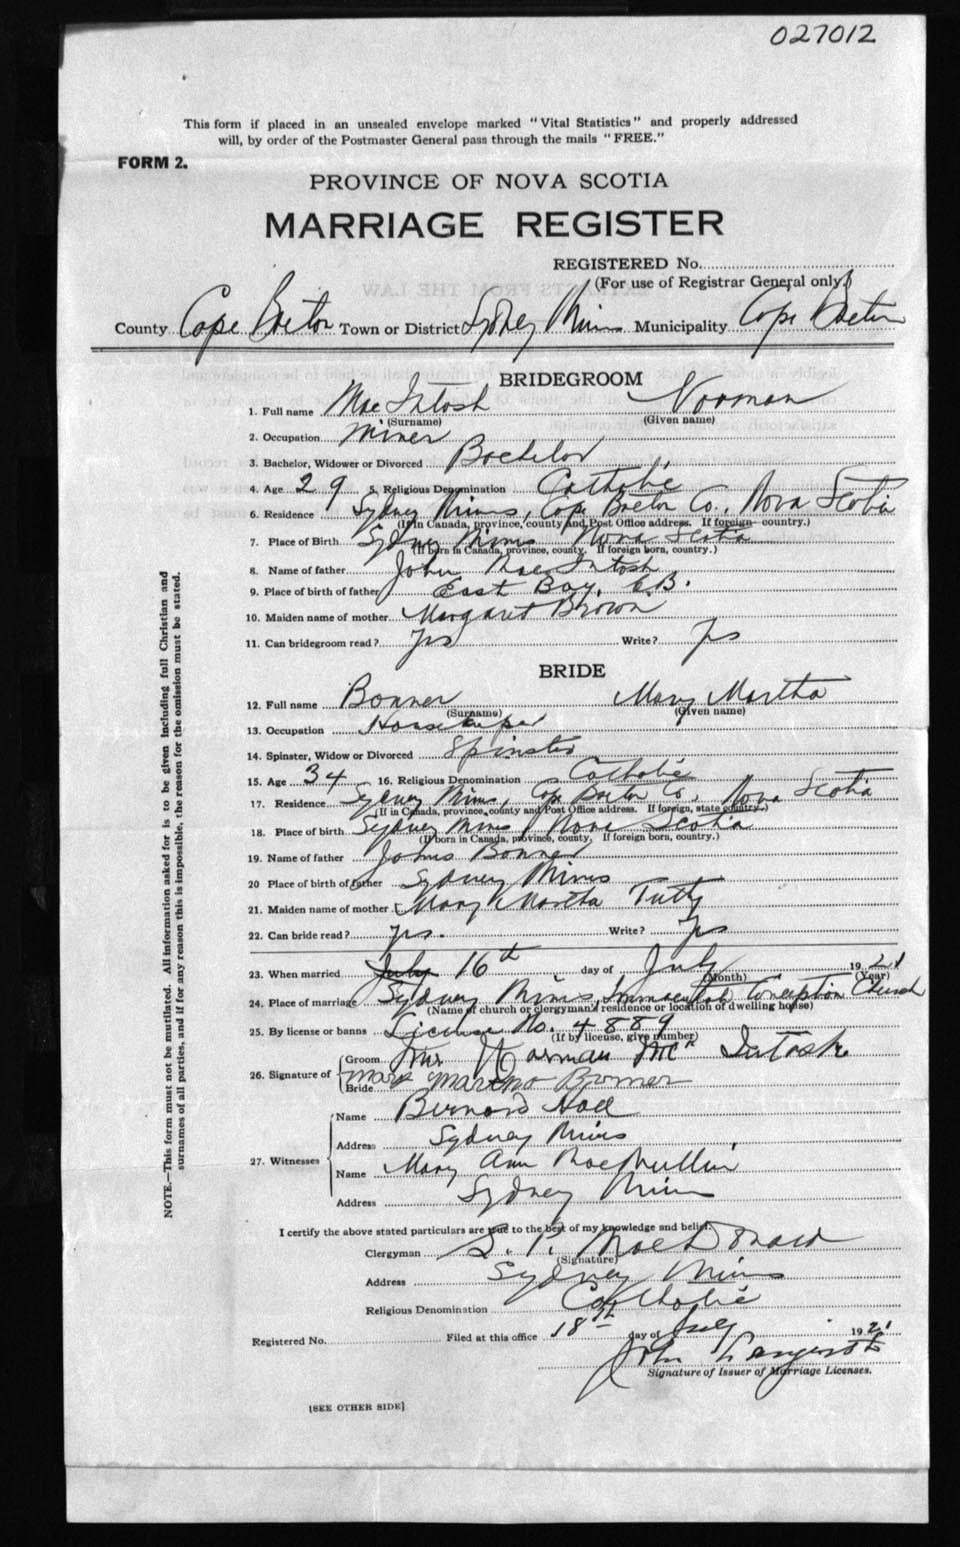 027012
This form if placed in an unsealed envelope marked "Vital Statistics" and properly addressed
will, by order of the Postmaster General pass through the mails "FREE."
FORM 2.
PROVINCE OF NOVA SCOTIA
MARRIAGE REGISTER
REGISTERED No.
(For use of Registrar General only.)
County Cape Breton Town or District Sydney Mines Municipality Cape Breton
BRIDEGROOM
1. Full name MacIntosh Norman
(Surname) (Given name)
2. Occupation miner
3. Bachelor, Widower or Divorced Bachelor
4. Age 29 5. Religious Denomination Catholic
6. Residence Sydney Mines, Cape Breton Co., Nova Scotia
(If in Canada, province, county and Post Office address. If foreign country.)
7. Place of Birth Sydney Mines Nova Scotia
(If born in Canada, province, county. If foreign born, country.)
8. Name of father John MacIntosh
9. Place of birth of father East Bay, C.B.
10. Maiden name of mother Margaret Brown
11. Can bridegroom read? Yes Write? Yes
BRIDE
12. Full name Bonner Mary Martha
(Surname) (Given name)
13. Occupation Housekeeper
14. Spinster, Widow or Divorced Spinster
15. Age 34 16. Religious Denomination Catholic
17. Residence Sydney Mines, Cape Breton Co. Nova Scotia
(If in Canada, province, county and Post Office address. If foreign, state country.)
18. Place of birth Sydney Mines Nova Scotia
(If born in Canada, province, county. If foreign born, country.)
19. Name of father Bonner
20 Place of birth of father Sydney Mines
21. Maiden name of mother Mary Martha Tutty
22. Can bride read? Yes. Write? Yes
23. When married July 16th day of July 1921
(Month) (Year)
24. Place of marriage Sydney Mines, Immaculate Conception Church
(Name of church or clergyman's residence or location of dwelling house)
25. By license or banns License No. 4889
(If by license, give number)
26. Signature of
Groom Mr Norman Mc Intosh
Bride Mary Martha Bonner
27. Witnesses
Name Bernard Hall
Address Sydney Mines
Name Mary Ann MacMullin
Address Sydney Mines
I certify the above stated particulars are true to the best of my knowledge and belief.
Clergyman S. P. MacDonald
(Signature)
Address Sydney Mines
Religious Denomination Catholic
Registered No. Filed at this office 18th day of July 1921
John
Signature of Issuer of Marriage Licenses.
[SEE OTHER SIDE]
NOTE.—This form must not be mutilated. All information asked for is to be given including full Christian and
surnames of all parties, and if for any reason this is impossible, the reason for the omission must be stated.